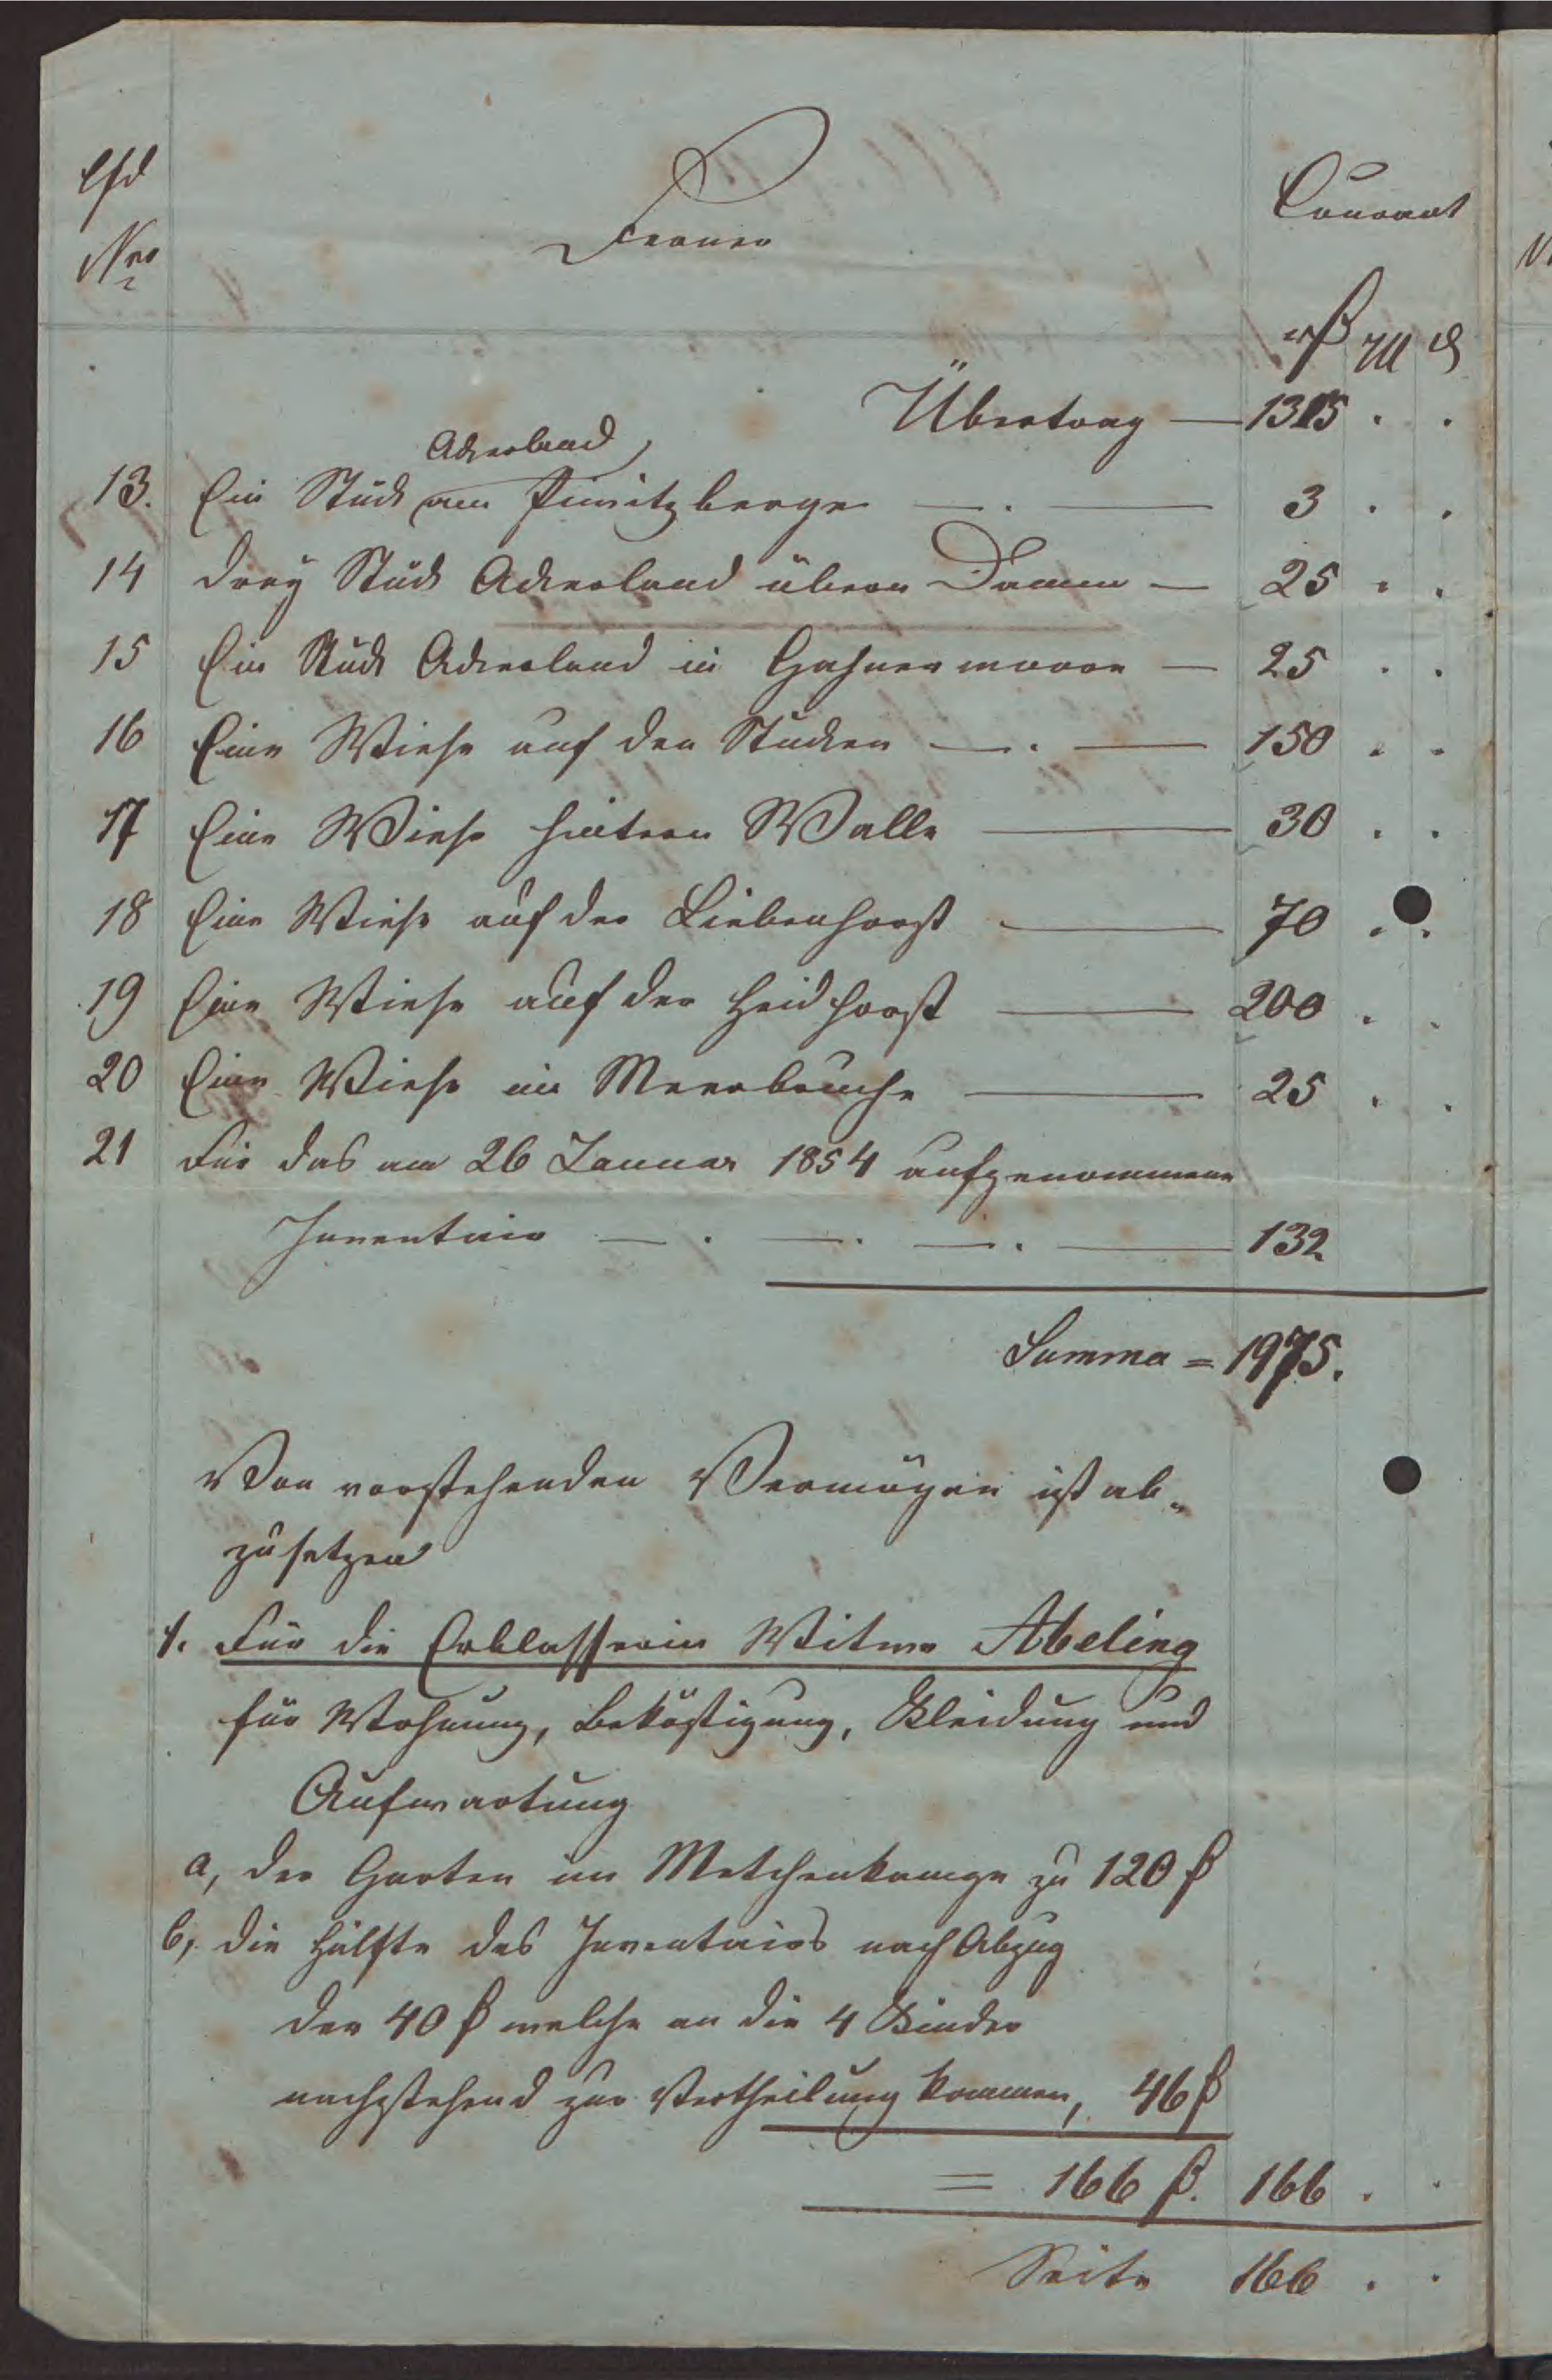 lfd
Nro
Ferner
Courant
rß M ₰
Übertrag — 1315 . .
Ackerland
13. Ein Stück am Pinnitzberge — . — 3 . .
14 Drey Stück Ackerland übern Damm — 25 . .
15 Ein Stück Ackerland in Hahnenmoore — 25 . .
16 Eine Wiese auf den Stücken — . — 150 . .
17 Eine Wiese hintern Walle — 30 . .
18 Eine Wiese auf der Liebenhorst — 70 . .
19 Eine Wiese auf der Heidhorst — 200 . .
20 Eine Wiese im Meerbruche — 25 . .
21 Für das am 26 Januar 1854 aufgenommene
Inventair — . — . — . — 132
Summa = 1975.
Von vorstehenden Vermögen ist ab-
zusetzen
1. Für die Erblasserin Witwe Abeling
für Wohnung, Beköstigung, Kleidung und
Aufwartung
a, der Garten im Metschenkampe zu 120 ß
b, die Hälfte des Inventairs nach Abzug
der 40 ß welche an die 4 Kinder
nachstehend zur Vertheilung kommen, 46 ß
= 166 ß. 166 . .
Seite 166 . .